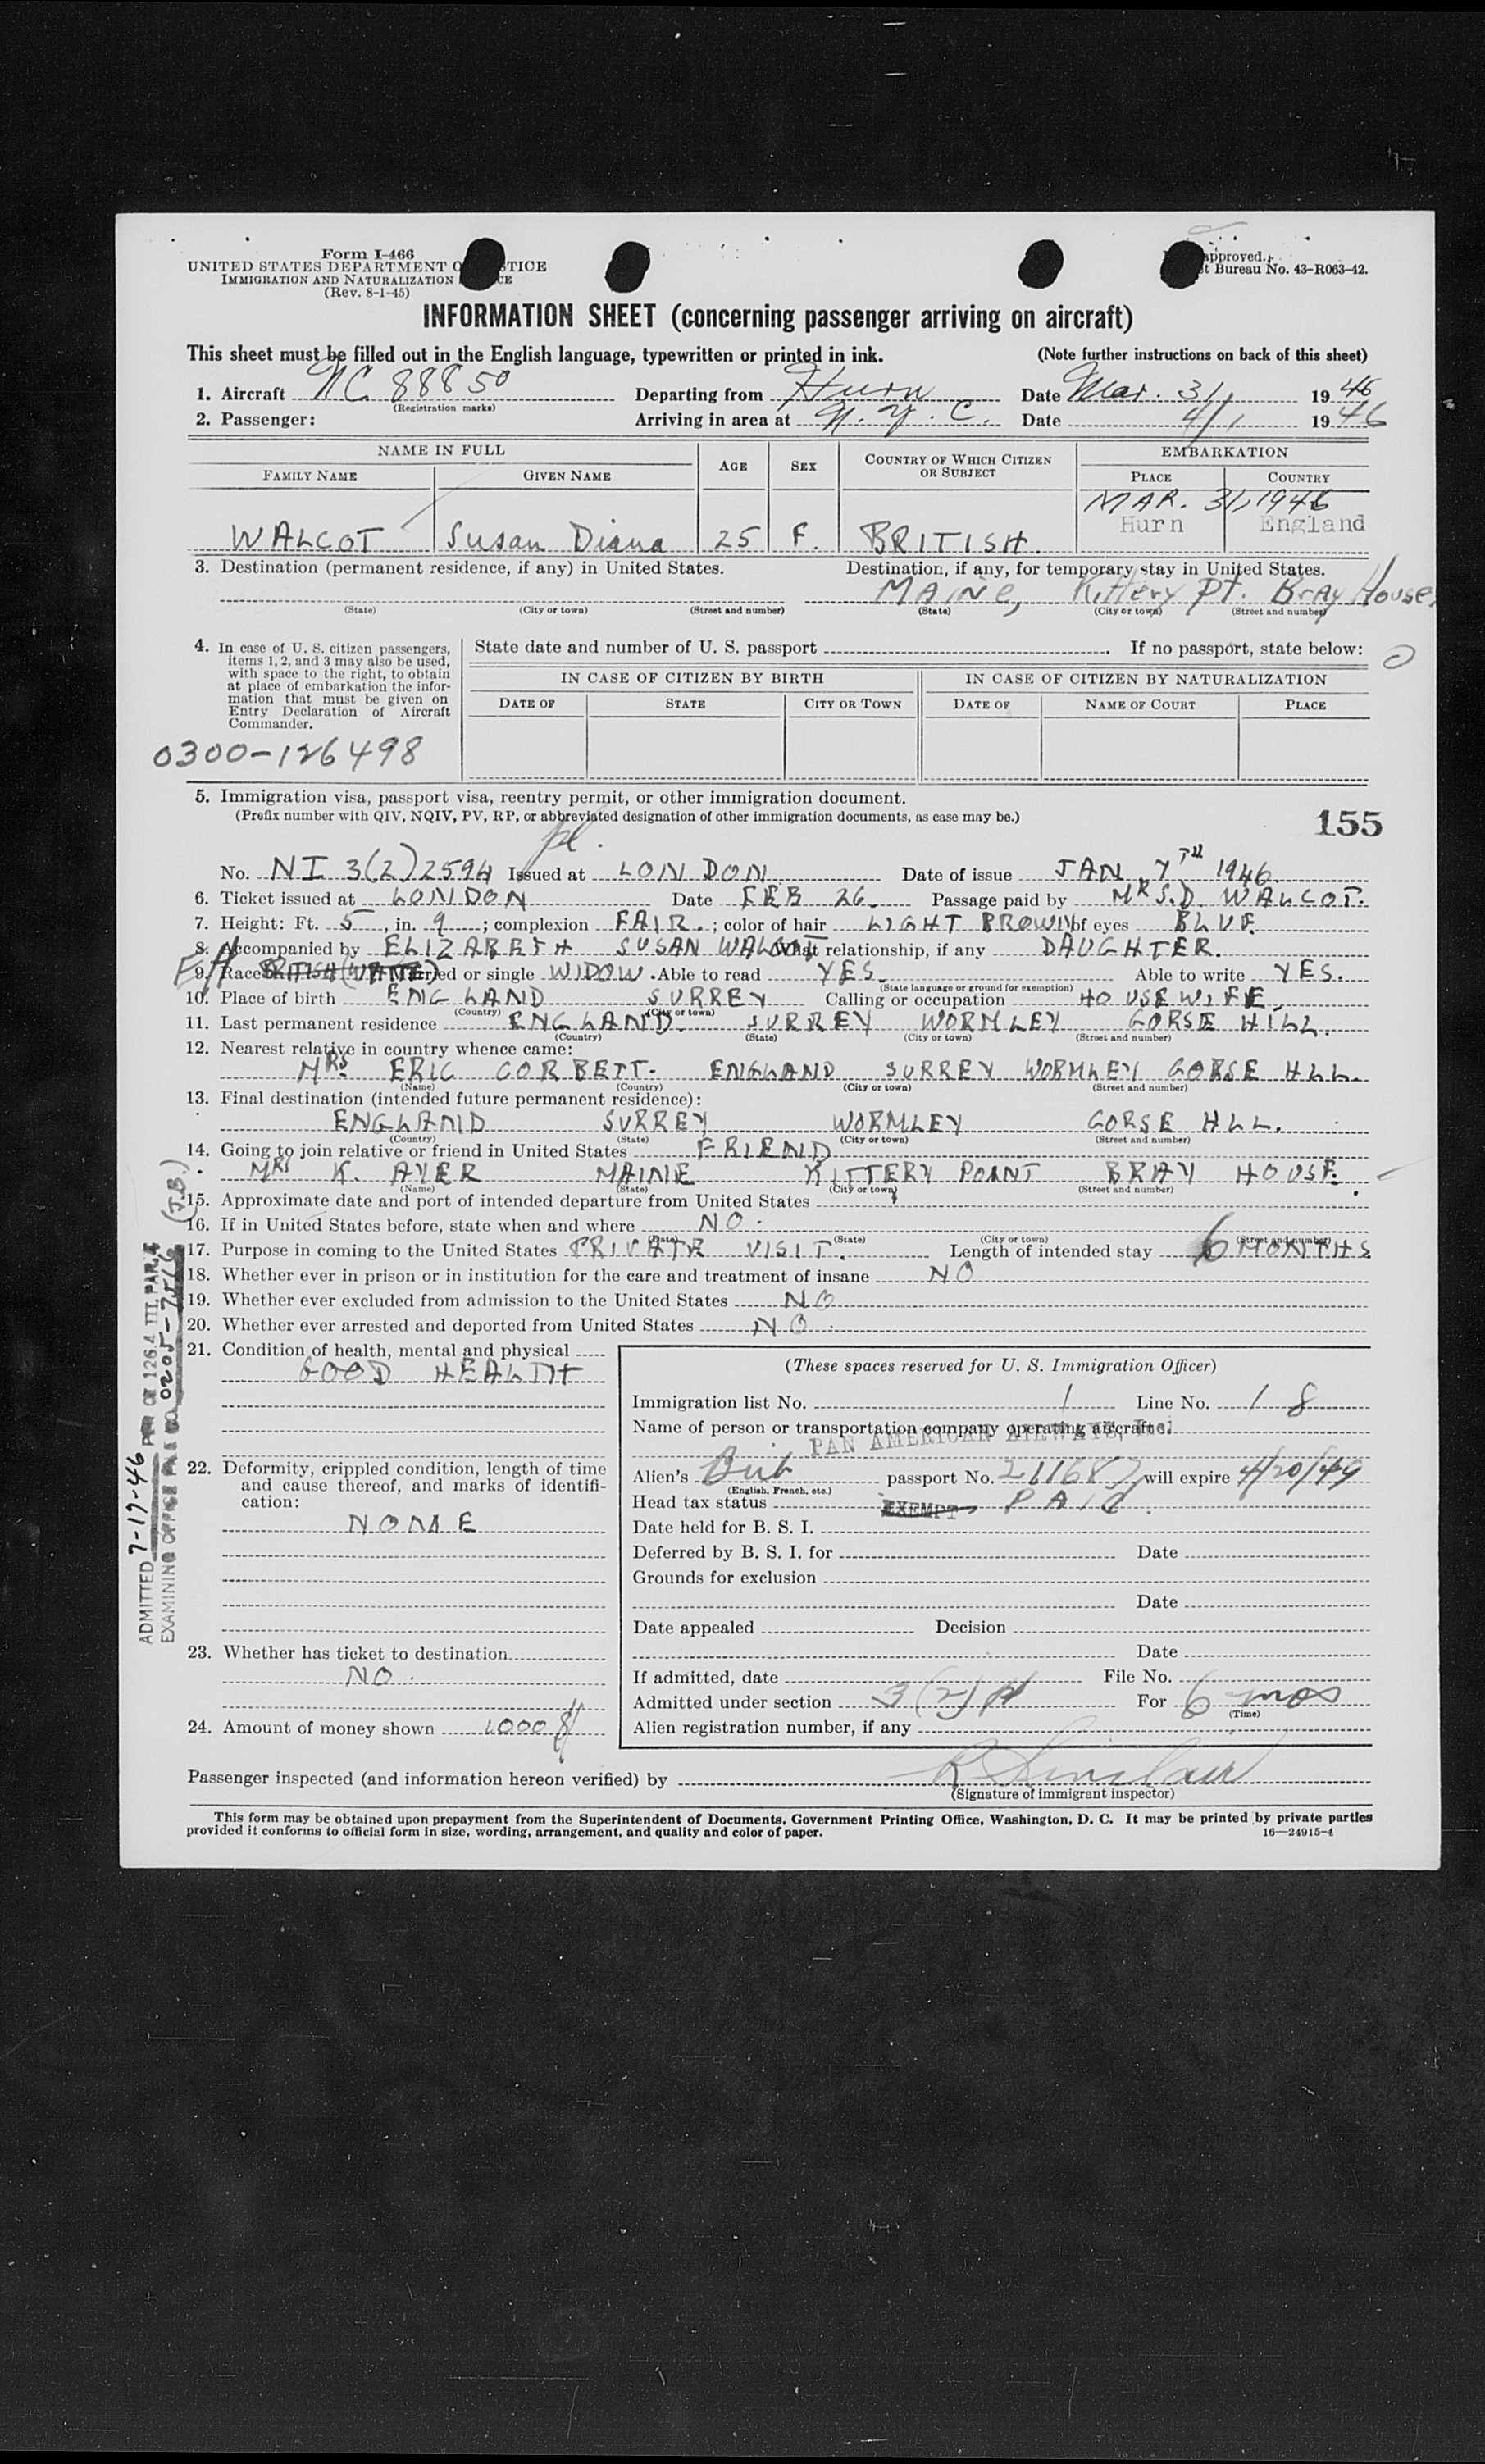 Form I-466
UNITED STATES DEPARTMENT O STICE
IMMIGRATION AND NATURALIZATION CE
(Rev. 8-1-45)
approved.
t Bureau No. 43-R063-42.
INFORMATION SHEET (concerning passenger arriving on aircraft)
This sheet must be filled out in the English language, typewritten or printed in ink. (Note further instructions on back of this sheet)
1. Aircraft NC 88850 Departing from Hurn Date Mar. 31, 1946
(Registration marks)
2. Passenger: Arriving in area at N.Y.C. Date 4/1 1946
NAME IN FULL AGE SEX COUNTRY OF WHICH CITIZEN OR SUBJECT EMBARKATION
FAMILY NAME GIVEN NAME PLACE COUNTRY
MAR. 31, 1946
Hurn England
WALCOT Susan Diana 25 F. BRITISH.
3. Destination (permanent residence, if any) in United States. Destination, if any, for temporary stay in United States.
MAINE, Kittery Pt. Bray House,
(State) (City or town) (Street and number) (State) (City or town) (Street and number)
4. In case of U. S. citizen passengers,
items 1, 2, and 3 may also be used,
with space to the right, to obtain
at place of embarkation the infor-
mation that must be given on
Entry Declaration of Aircraft
Commander.
State date and number of U. S. passport If no passport, state below:
IN CASE OF CITIZEN BY BIRTH IN CASE OF CITIZEN BY NATURALIZATION
DATE OF STATE CITY OR TOWN DATE OF NAME OF COURT PLACE
0300-126498
5. Immigration visa, passport visa, reentry permit, or other immigration document.
(Prefix number with QIV, NQIV, PV, RP, or abbreviated designation of other immigration documents, as case may be.)
155
No. NI 3(2)2594 Issued at LONDON Date of issue JAN 7TH 1946
6. Ticket issued at LONDON Date FEB 26. Passage paid by MRS. D. WALCOT.
7. Height: Ft. 5, in. 9; complexion FAIR.; color of hair LIGHT BROWN of eyes BLUE
8. Accompanied by ELIZABETH SUSAN WALCOT What relationship, if any DAUGHTER.
9. Race BRITISH (WHITE) Married or single WIDOW. Able to read YES. Able to write YES.
(State language or ground for exemption)
10. Place of birth ENGLAND SURREY Calling or occupation HOUSEWIFE.
(Country) (City or town)
11. Last permanent residence ENGLAND. SURREY WORMLEY GORSE HILL.
(Country) (State) (City or town) (Street and number)
12. Nearest relative in country whence came:
MRS ERIC CORBETT. ENGLAND SURREY WORMLEY GORSE HLL.
(Name) (Country) (City or town) (Street and number)
13. Final destination (intended future permanent residence):
ENGLAND SURREY WORMLEY GORSE HLL.
(Country) (State) (City or town) (Street and number)
14. Going to join relative or friend in United States FRIEND
MRS K. AYER MAINE KITTERY POINT BRAY HOUSE.
(Name) (State) (City or town) (Street and number)
15. Approximate date and port of intended departure from United States
16. If in United States before, state when and where NO.
(Date) (State) (City or town) (Street and number)
17. Purpose in coming to the United States PRIVATE VISIT. Length of intended stay 6 MONTHS
18. Whether ever in prison or in institution for the care and treatment of insane NO
19. Whether ever excluded from admission to the United States NO
20. Whether ever arrested and deported from United States NO.
21. Condition of health, mental and physical
GOOD HEALTH
22. Deformity, crippled condition, length of time
and cause thereof, and marks of identifi-
cation:
NONE
23. Whether has ticket to destination
NO.
24. Amount of money shown 1000
(These spaces reserved for U. S. Immigration Officer)
Immigration list No. 1 Line No. 18
Name of person or transportation company operating aircraft
PAN AMERICAN AIRWAYS, Inc.
Alien's Brit passport No. 211687 will expire 4/20/49
(English, French, etc.)
Head tax status EXEMPT PAID
Date held for B. S. I.
Deferred by B. S. I. for Date
Grounds for exclusion
Date
Date appealed Decision
Date
If admitted, date File No.
Admitted under section 3(2) For 6 mos
(Time)
Alien registration number, if any
Passenger inspected (and information hereon verified) by R Sinclair
(Signature of immigrant inspector)
This form may be obtained upon prepayment from the Superintendent of Documents, Government Printing Office, Washington, D. C. It may be printed by private parties
provided it conforms to official form in size, wording, arrangement, and quality and color of paper. 16—24915-4
ADMITTED 7-17-46
EXAMINING OFFICE 0205-7516 (J.B.)